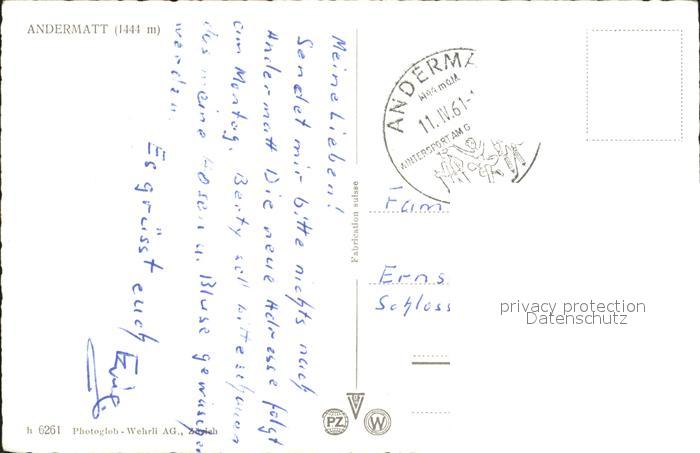 ANDERMATT (1444 m)
Meine Lieben!
Sendet mir bitte nichts nach
Andermatt Die neue Adresse folgt
am Montag. Berty soll bitte schauen
das meine Hosen u. Bluse gewaschen
werden.
Es grüsst euch
ANDERMA
1444 m ü.M.
11.IV.61-
WINTERSPORT AM G
Fabrication suisse
Fam
Erns
Schloss
privacy protection
Datenschutz
PZ
W
h 6261 Photoglob-Wehrli AG., Zürich